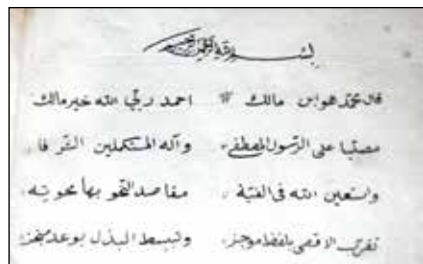 بسم الله الرحمن الرحيم
قال محمد هو ابن مالك احمد ربي الله خير مالك
مصليا على الرسول المصطفى وآله المستكملين الشرفا
واستعين الله في الفية مقاصد النحو بها محوية
تقرب الاقصى بلفظ موجز وتبسط البذل بوعد منجز